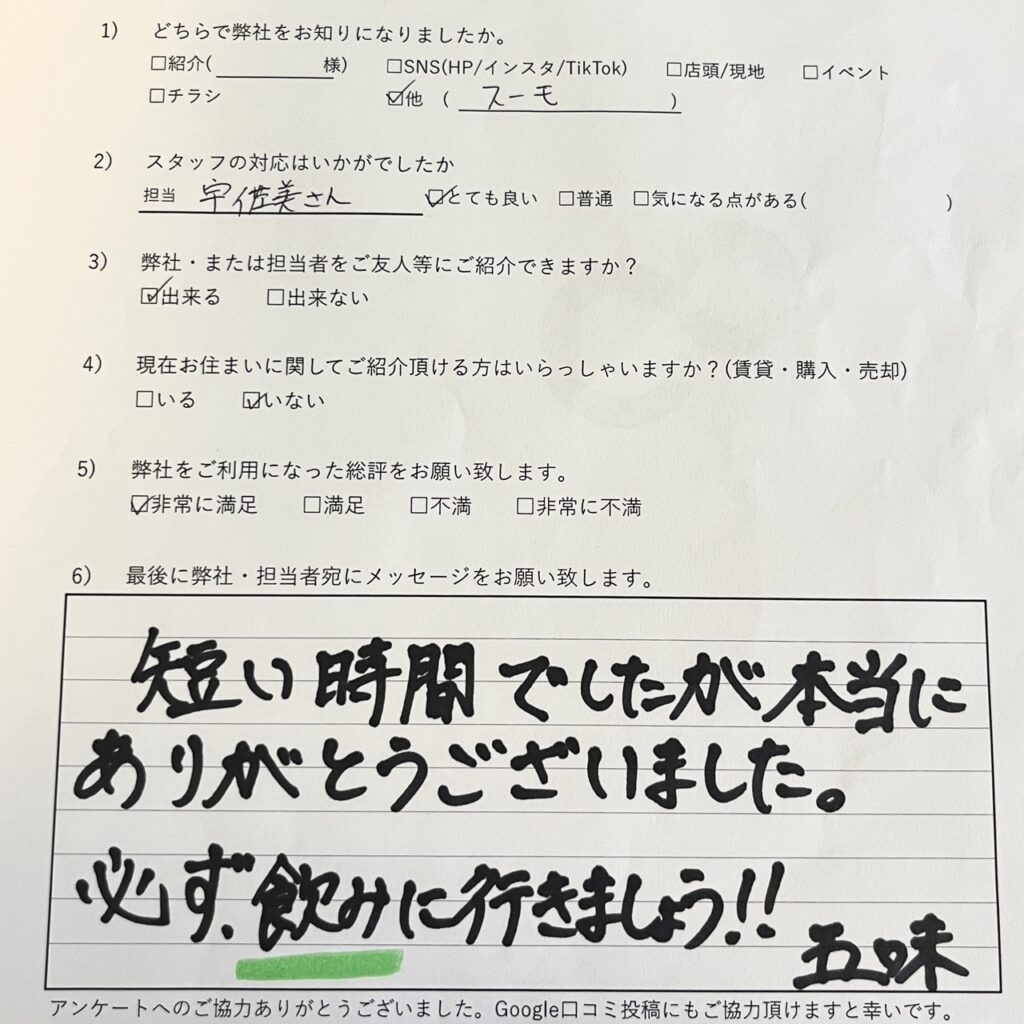 1) どちらで弊社をお知りになりましたか。
□紹介( 様) □SNS(HP/インスタ/TikTok) □店頭/現地 □イベント
□チラシ ☑他 ( スーモ )
2) スタッフの対応はいかがでしたか
担当 宇佐美さん ☑とても良い □普通 □気になる点がある( )
3) 弊社・または担当者をご友人等にご紹介できますか？
☑出来る □出来ない
4) 現在お住まいに関してご紹介頂ける方はいらっしゃいますか？(賃貸・購入・売却)
□いる ☑いない
5) 弊社をご利用になった総評をお願い致します。
☑非常に満足 □満足 □不満 □非常に不満
6) 最後に弊社・担当者宛にメッセージをお願い致します。
短い時間でしたが本当に
ありがとうございました。
必ず、飲みに行きましょう!!
五味
アンケートへのご協力ありがとうございました。Google口コミ投稿にもご協力頂けますと幸いです。